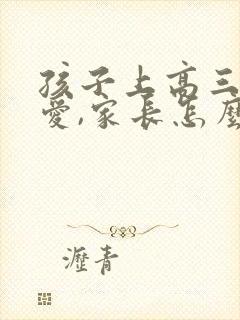 孩子上高三
愛,家長怎麼
瀝青